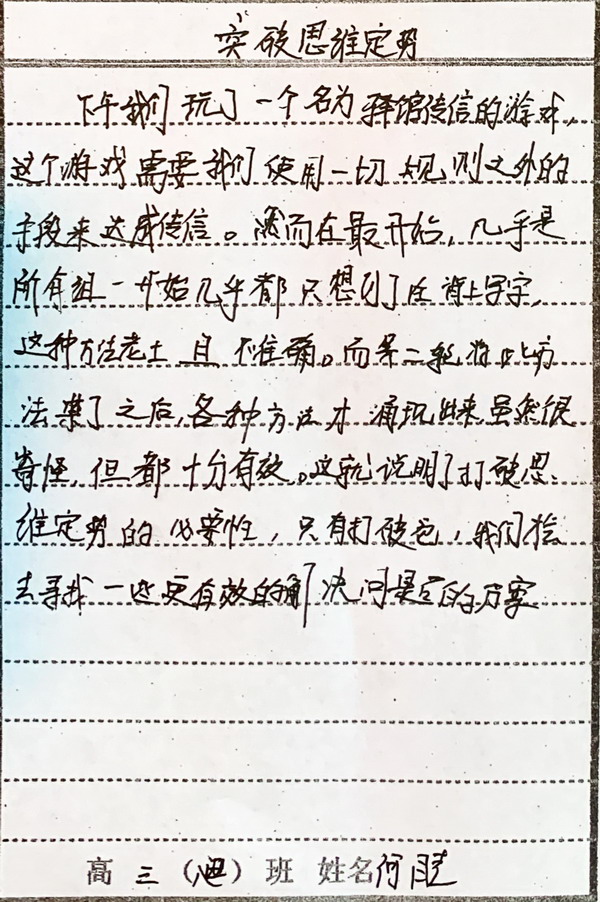 突破思维定势
下午我们玩了一个名为驿馆传信的游戏,
这个游戏需要我们使用一切规则之外的
手段来达成传信。然而在最开始,几乎是
所有组一开始几乎都只想到了在背上写字,
这种方法老土且不准确。而第二轮将此方
法禁了之后,各种方法才涌现出来,虽然很
奇怪,但都十分有效。这就说明了打破思
维定势的必要性,只有打破它,我们才会
去寻找一些更有效的解决问题的方案
高三()班 姓名何